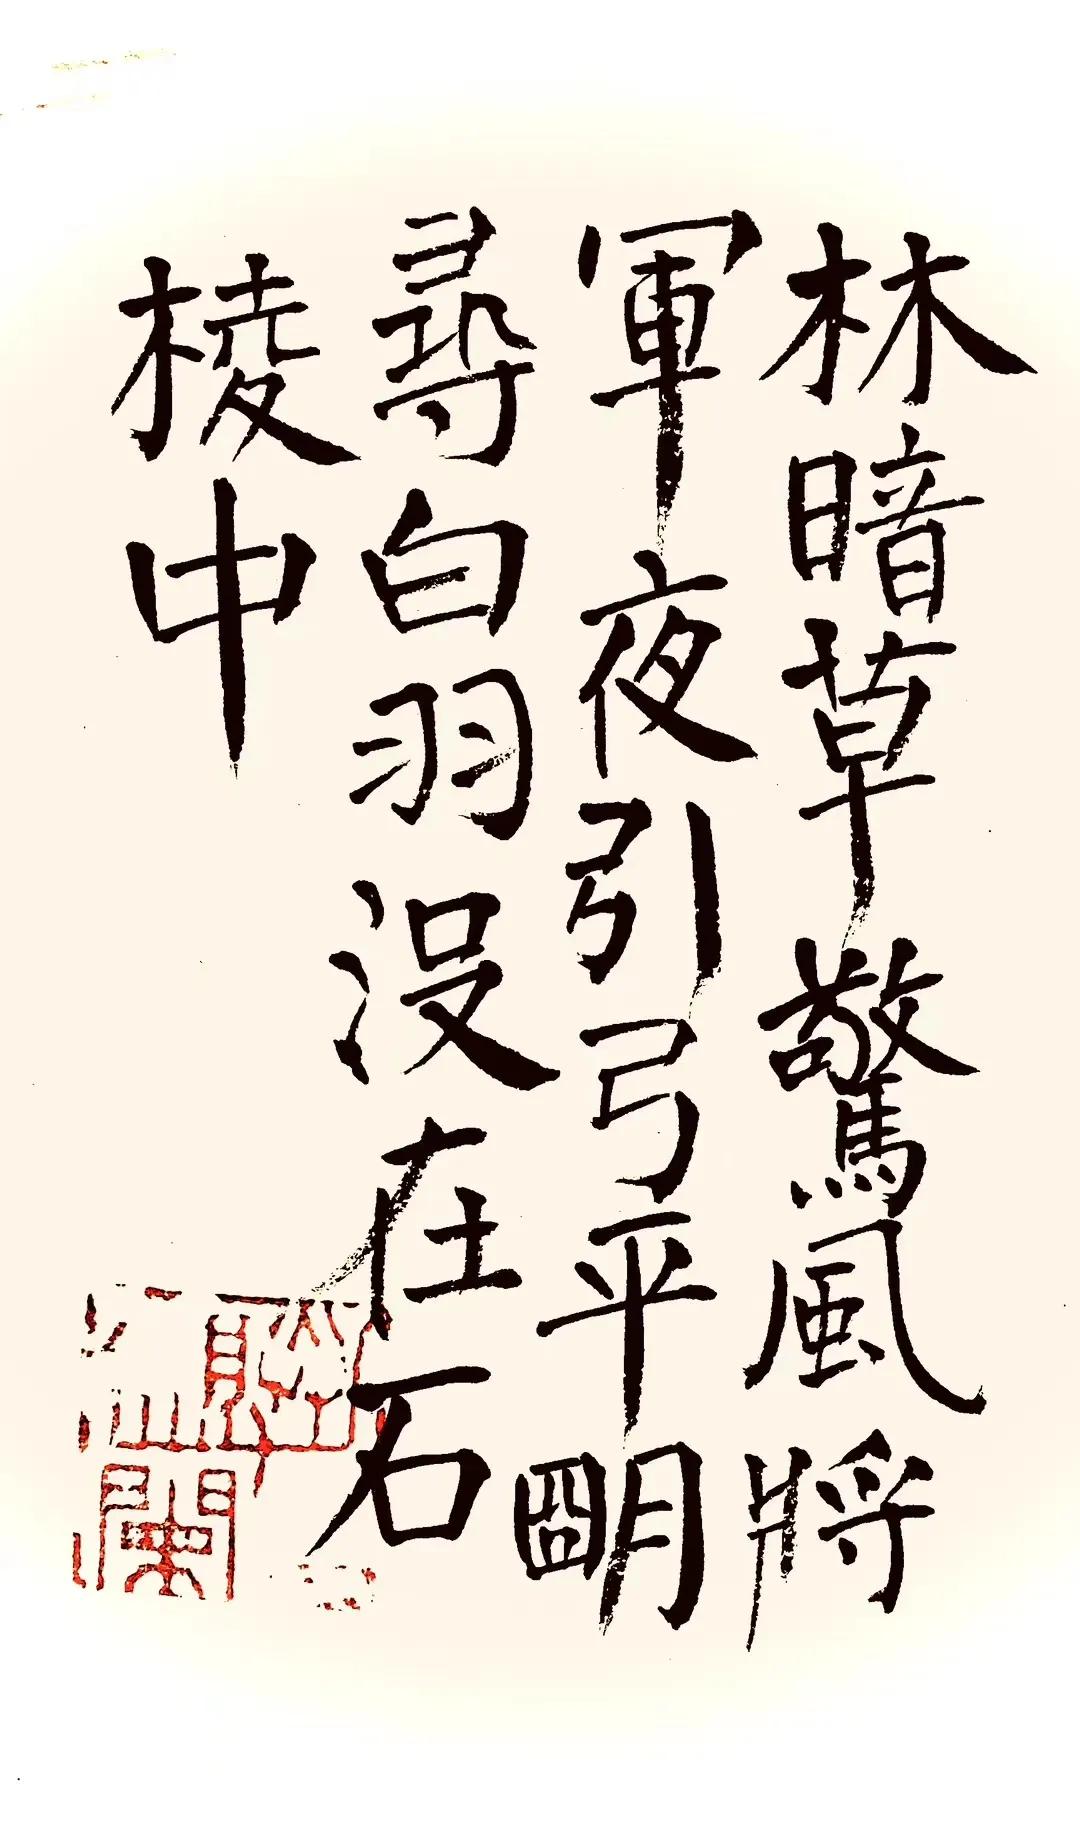 林暗草驚風將
軍夜引弓平明
尋白羽没在石
棱中